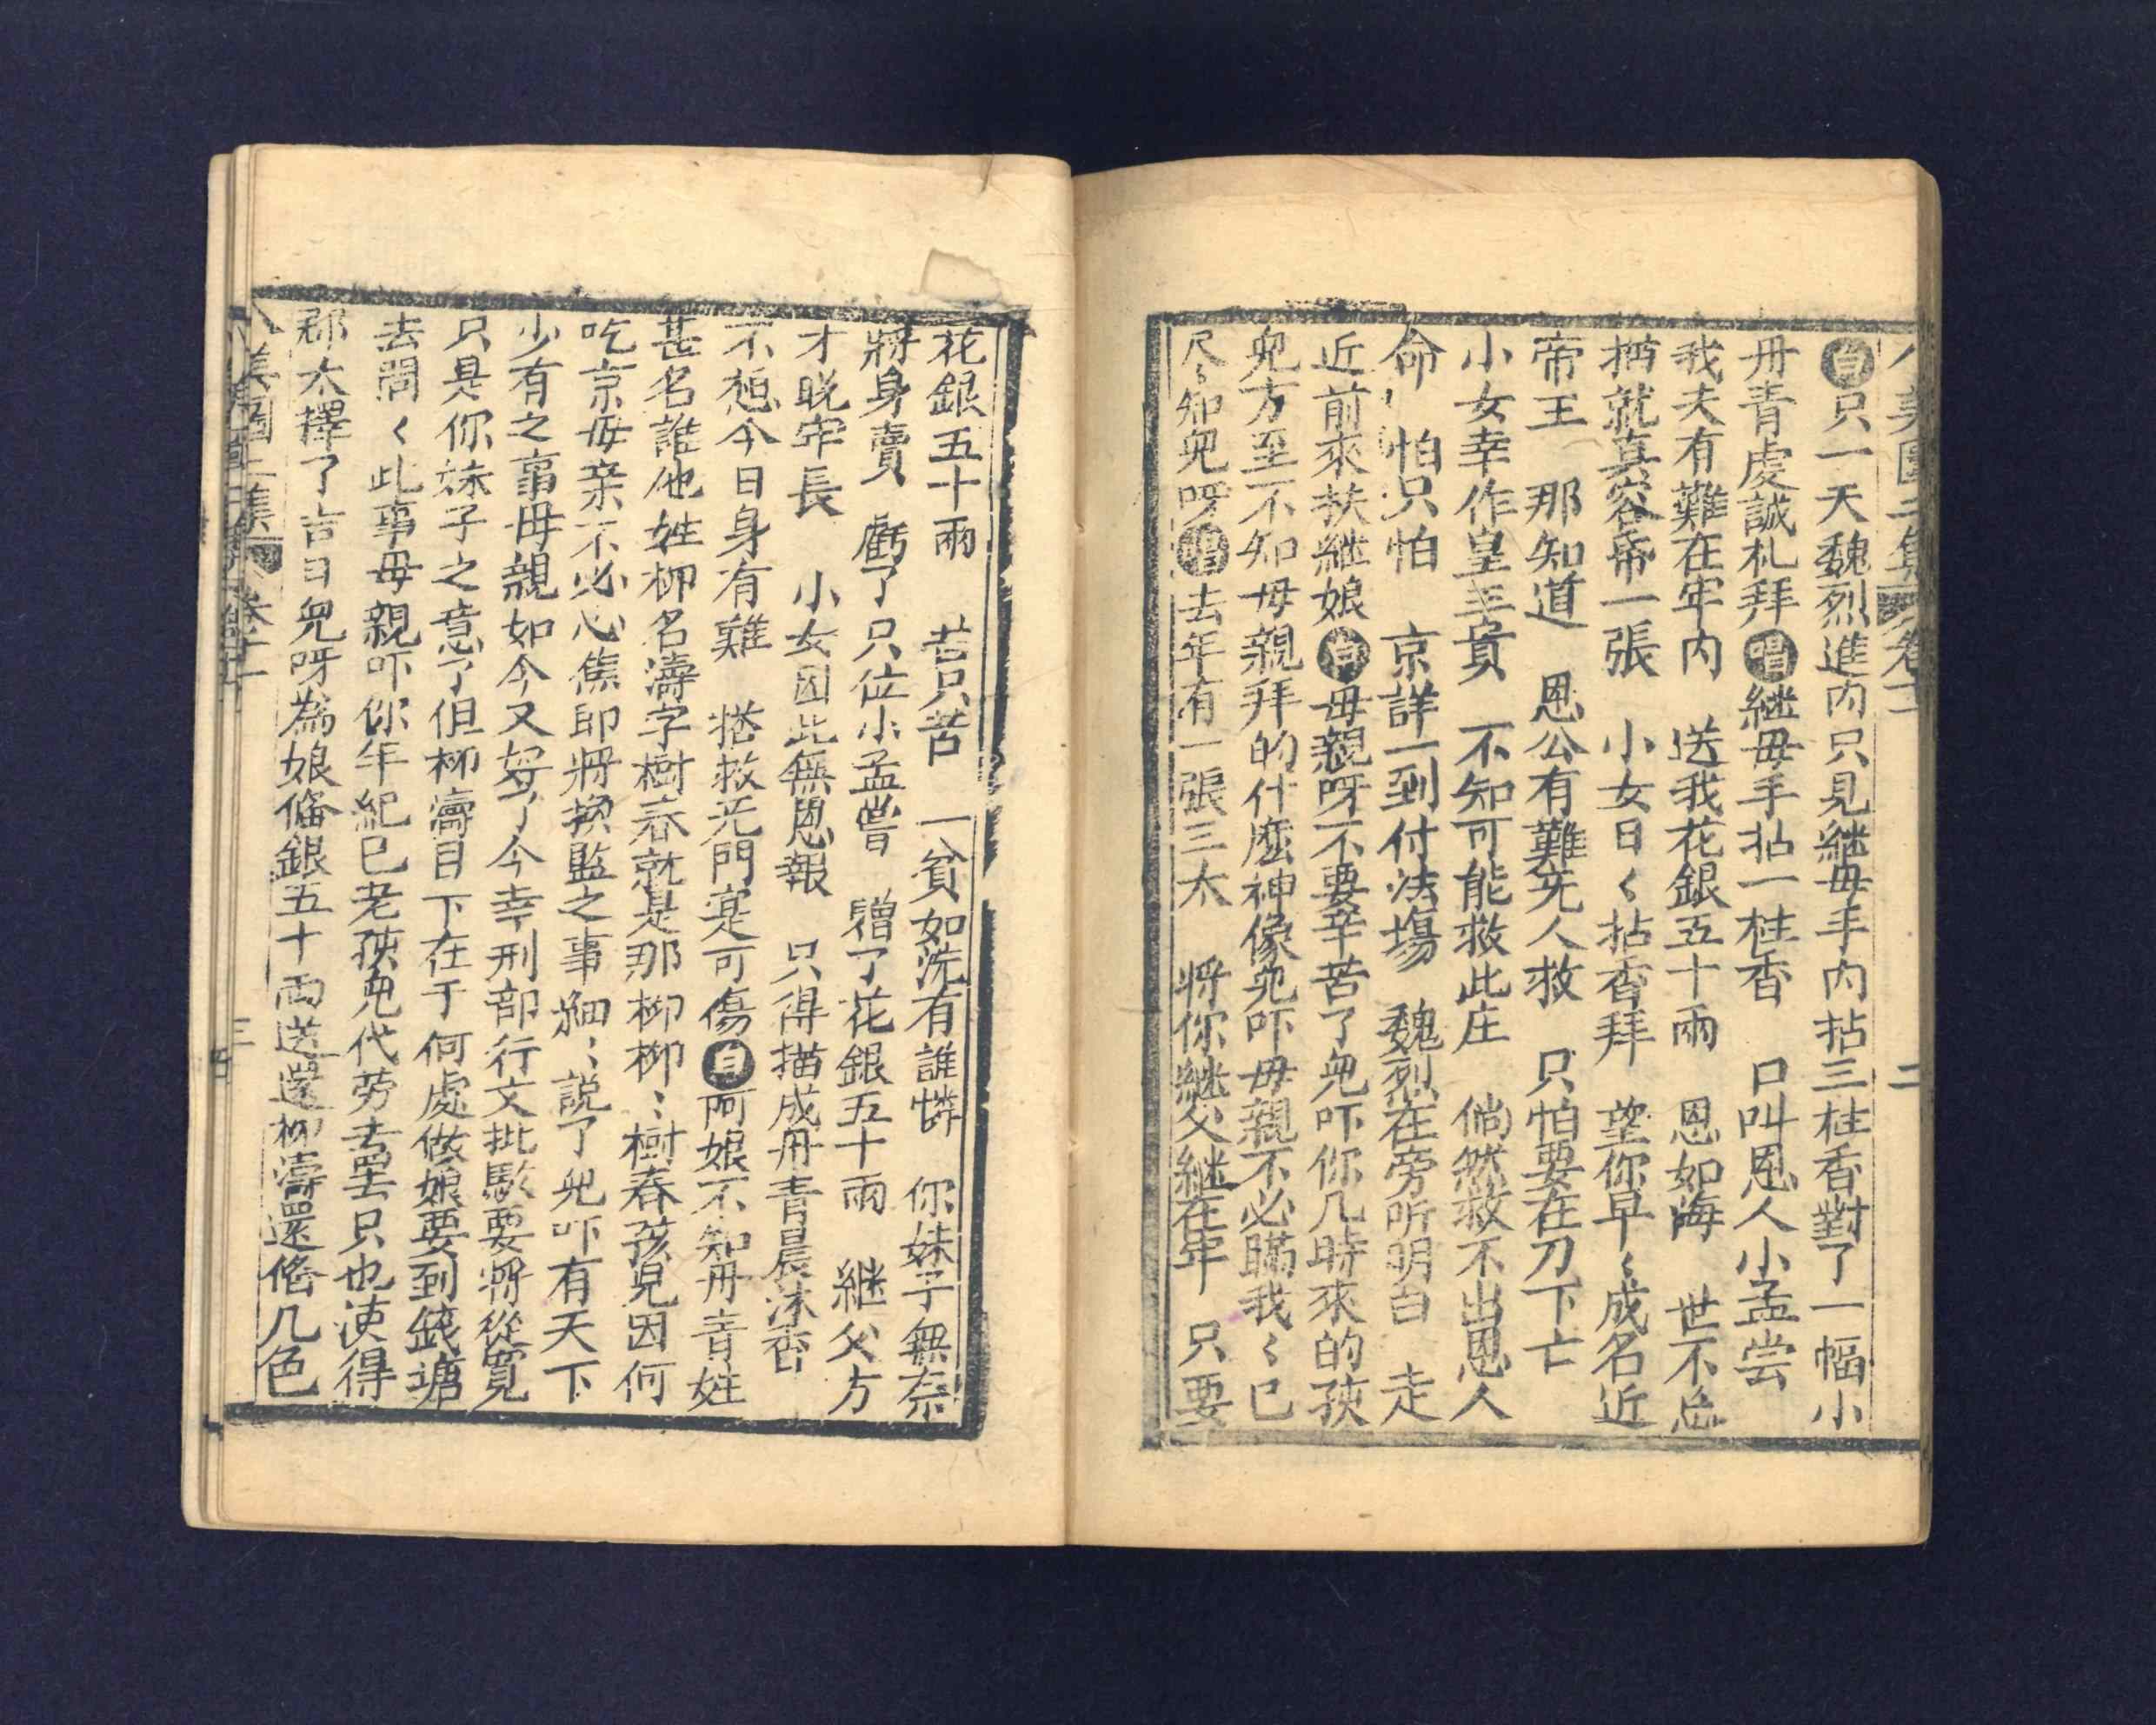 八美圖二集 卷十 二
白只一天魏烈進內只見継毋手內拈三柱香對了一幅小
丹青虔誠札拜唱継毋手拈一柱香 口叫恩人小孟尝
我夫有難在牢内 送我花銀五十兩 恩如海 世不忘
描就真容帋一張 小女日〱拈香拜 望你早〻成名近
帝王 那知道 恩公有難旡人救 只怕要在刀下亡
小女幸作皇王 不知可能救此庄 倘然救不出恩人
命 怕只怕 京詳一到付法塲 魏烈在旁听明白 走
近前來扶継娘白毋親呀不要辛苦了皃吓你几時來的孩
皃方至不知毋親拜的什麽神像皃吓毋親不必瞞我〻已
尽〻知皃呀唱去年有一張三太 将你継父継在牢 只要
花銀五十兩 苦只苦 一貧如洗有誰憐 你妹子無奈
將身賣 虧了只位小孟嘗 贈了花銀五十兩 継父方
才晚牢長 小女因此無恩報 只得描成丹青晨沐香
不想今日身有難 搭救旡門寔可傷白阿娘不知丹青姓
甚名誰他姓柳名濤字樹春就是那柳柳〻樹春孩兒因何
吃京毋亲不必心焦即將換監之事細〻説了皃吓有天下
少有之事毋親如今又好了今幸刑部行文批駁要將從寛
只具你妹子之意了但柳濤目下在于何處做娘要到錢塘
去問〱此事毋親吓你年紀已老孩皃代劳去罢只也使得
郡太擇了吉日皃呀為娘偹銀五十兩送還柳濤還偹几色
八美圖二集 卷十 三